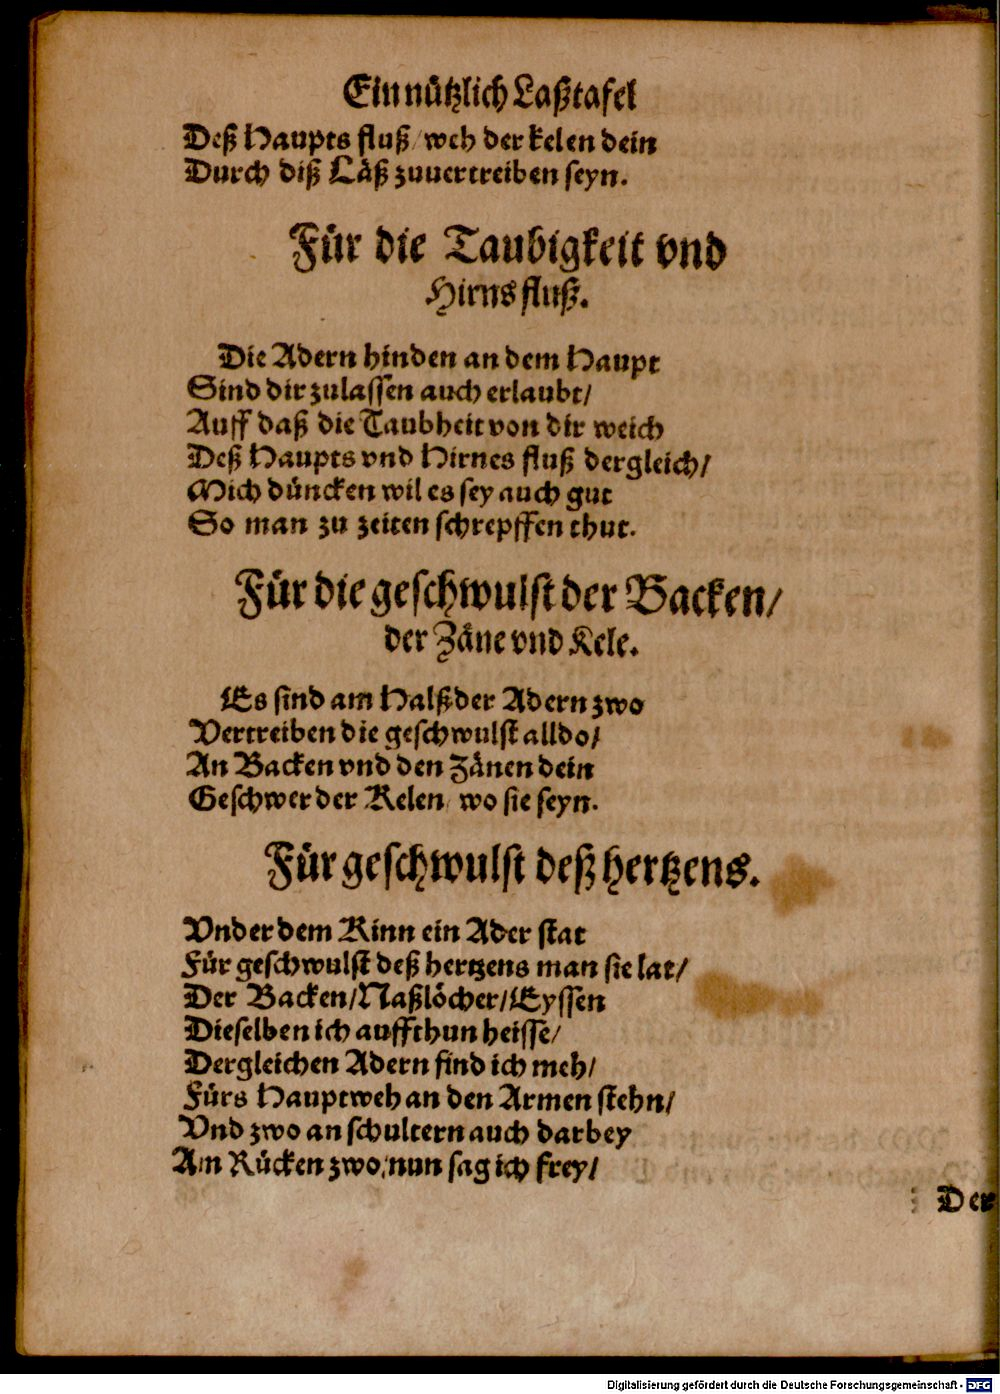 Ein nützlich Laßtafel
Deß Haupts fluß / weh der kelen dein
Durch diß Läß zuuertreiben seyn.
Für die Taubigkeit vnd
Hirns fluß.
Die Adern hinden an dem Haupt
Sind dir zulassen auch erlaubt /
Auff daß die Taubheit von dir weich
Deß Haupts vnd Hirnes fluß dergleich /
Mich düncken wil es sey auch gut
So man zu zeiten schrepffen thut.
Für die geschwulst der Backen /
der Zäne vnd Kele.
Es sind am Halß der Adern zwo
Vertreiben die geschwulst alldo /
An Backen vnd den Zänen dein
Geschwer der Kelen / wo sie seyn.
Für geschwulst deß hertzens.
Vnder dem Kinn ein Ader stat
Für geschwulst deß hertzens man sie lat /
Der Backen / Naßlöcher / Eyssen
Dieselben ich auffthun heisse /
Dergleichen Adern find ich meh /
Fürs Hauptweh an den Armen stehn /
Vnd zwo an schultern auch darbey
Am Rücken zwo / nun sag ich frey /
Der
Digitalisierung gefördert durch die Deutsche Forschungsgemeinschaft - DFG